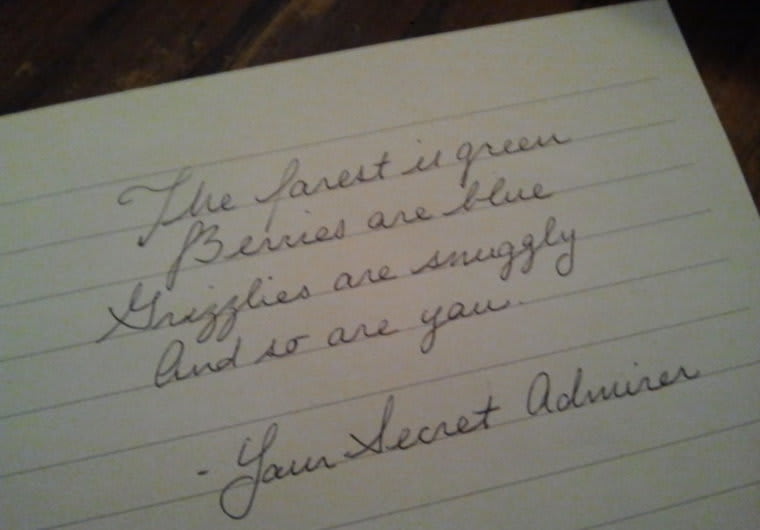 The forest is green
Berries are blue
Grizzlies are snuggly
And so are you.
- Your Secret Admirer